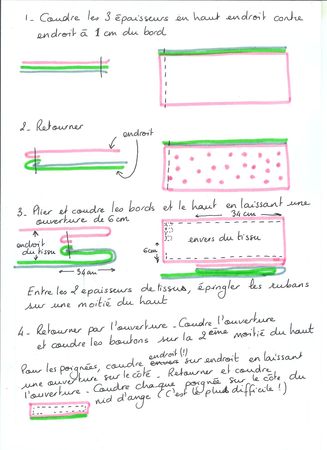 1- Coudre les 3 épaisseurs en haut endroit contre
endroit à 1 cm du bord
2- Retourner
endroit
endroit
3- Plier et coudre les bords et le haut en laissant une
ouverture de 6cm
34 cm
endroit
du tissu
envers du tissu
6cm
34 cm
Entre les 2 épaisseurs de tissus, épingler les rubans
sur une moitié du haut
4- Retourner par l'ouverture - Coudre l'ouverture
et coudre les boutons sur la 2ème moitié du haut
endroit (!)
Pour les poignées, coudre envers sur endroit en laissant
une ouverture sur le côté - Retourner et coudre
l'ouverture - Coudre chaque poignée sur le côté du
nid d'ange (C'est le plus difficile !)